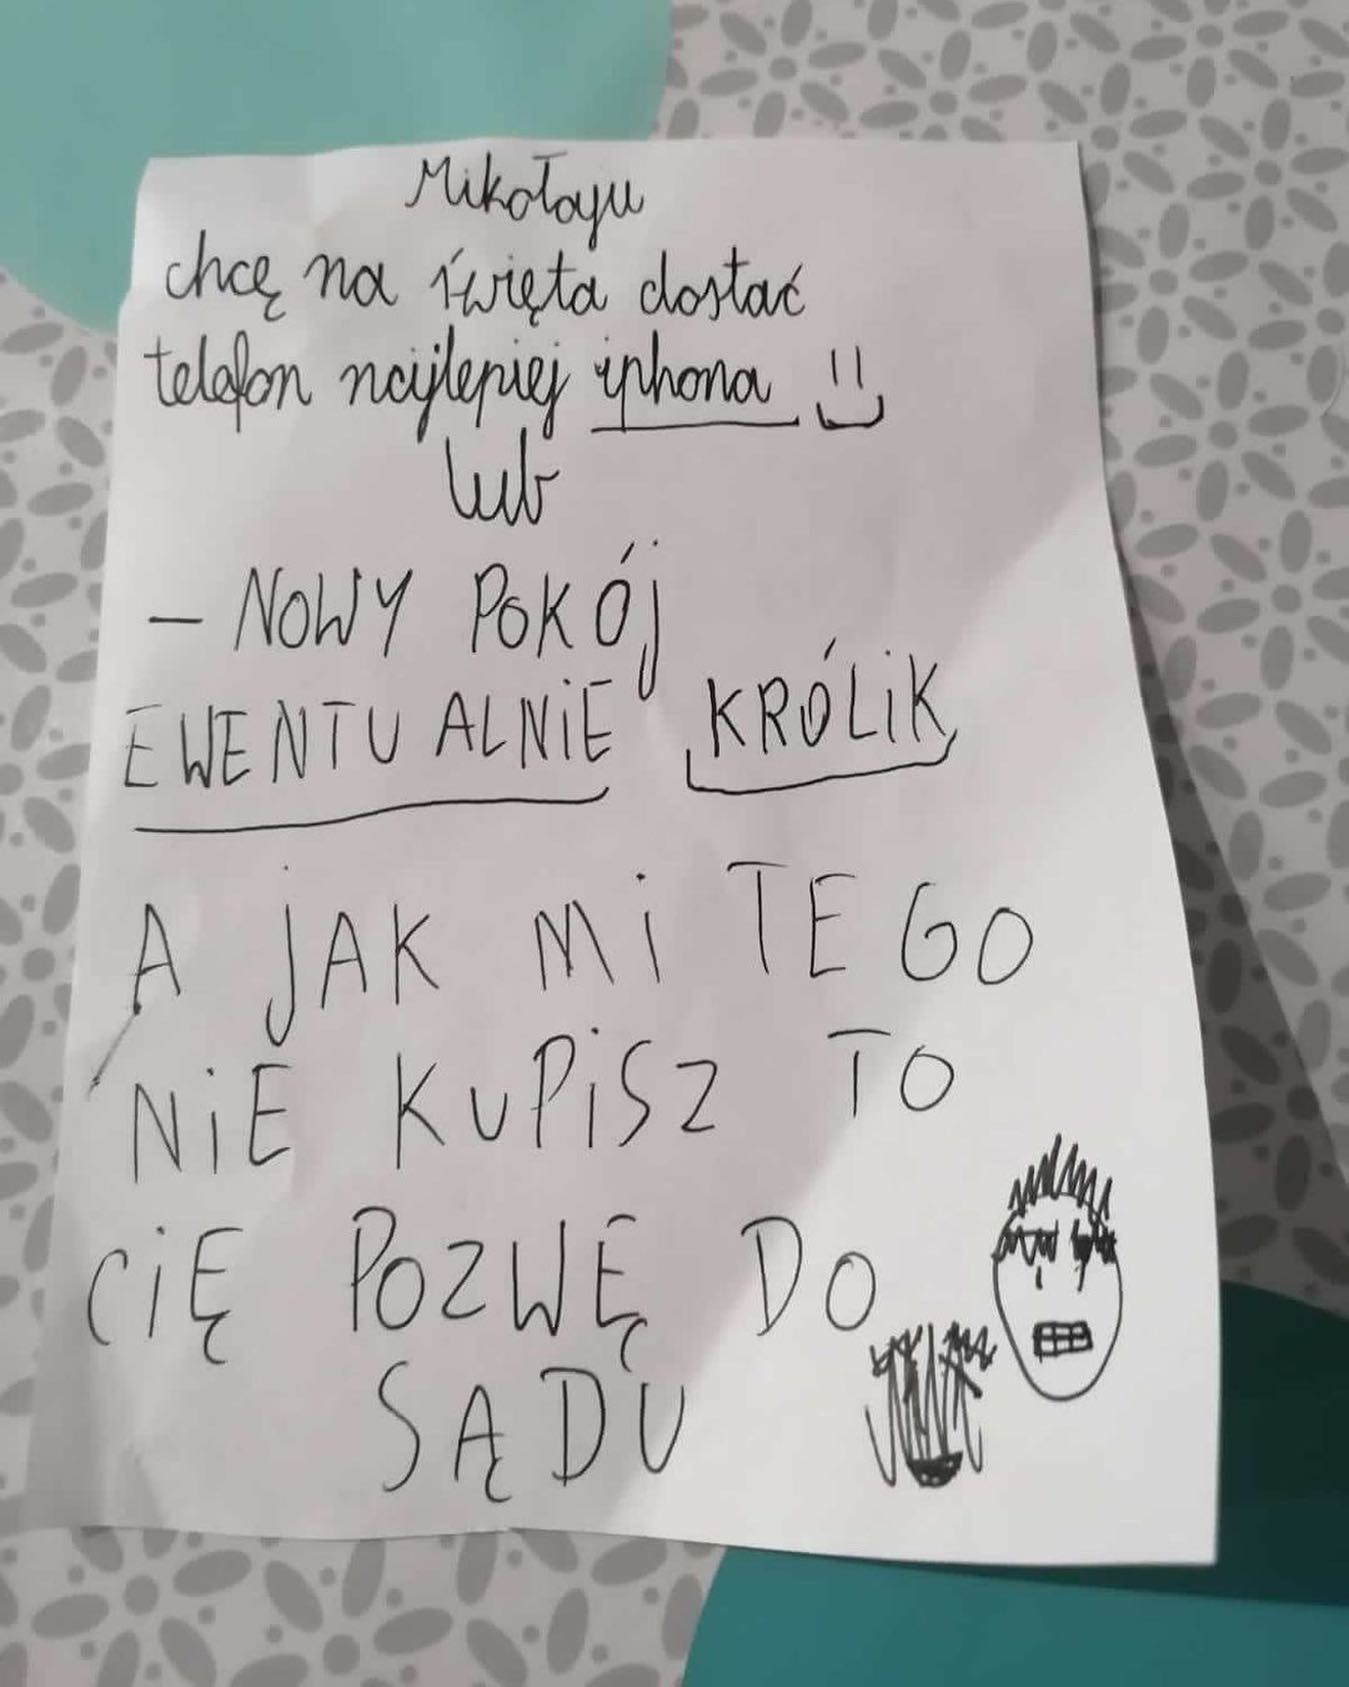 Mikołaju
chcę na święta dostać
telefon najlepiej iphona
lub
- NOWY POKÓJ
EWENTUALNIE KRÓLiK
A JAK Mi TEGO
NiE KUPiSZ TO
CiĘ POZWĘ DO
SĄDU